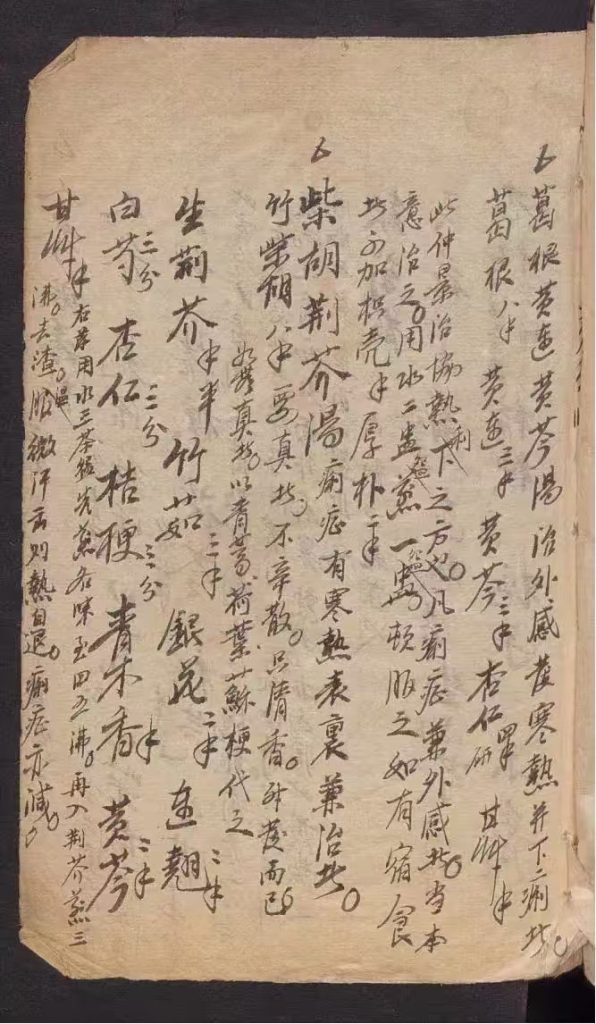 葛根黄連黄芩湯治外感發寒熱并下痢者。
葛根八錢 黄連三錢 黄芩三錢 杏仁研 甘艸
此仲景治協熱下利之方也。凡痢症兼外感者。當本
意治之。用水二盅煎一盅頓服之如有宿食
者可加枳壳錢厚朴二錢
柴胡荆芥湯痢症有寒熱表裏兼治者。
竹柴胡八錢要真者。不辛散。只清香。升發而已。
如無真者。以青蒿荷葉蘇梗代之
生荆芥錢半 竹茹三錢 銀花二錢 連翹二錢
白芍三分 杏仁三分 桔梗三分 青木香錢 黄芩二錢
甘艸錢右藥用水三茶 先煎各味至四五沸。再入荆芥煎三
沸。去渣。温服微汗出則熱自退。痢症亦減。